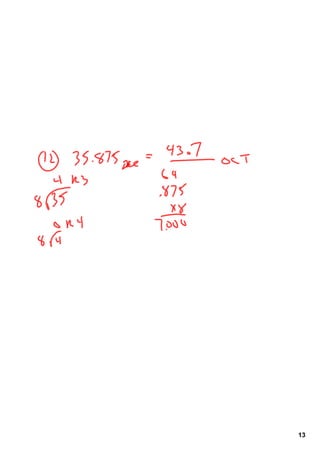 12 35.875 DEC = 43.7 OCT
4 R3
8 35
0 R4
8 4
.875
x8
7.000
13